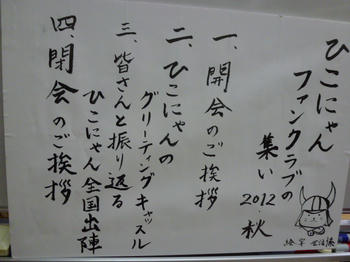 ひこにゃん
ファンクラブの
集い 2012.秋
一、開会のご挨拶
二、ひこにゃんの
グリーティングキャッスル
三、皆さんと振り返る
ひこにゃん全国出陣
四、閉会のご挨拶